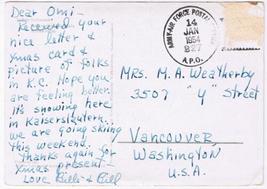 Dear Omi -
Received your
nice letter &
Xmas card &
picture of folks
in K.C. Hope you
are feeling better.
It's snowing here
in Kaiserslautern.
we are going skiing
this weekend.
Thanks again for
Xmas present -
Love Billi & Bill
ARMY-AIR FORCE POSTAL
14
JAN
1954
827
A.P.O.
Mrs. M. A. Weatherby
3507 "Y" Street
Vancouver
Washington
U.S.A.